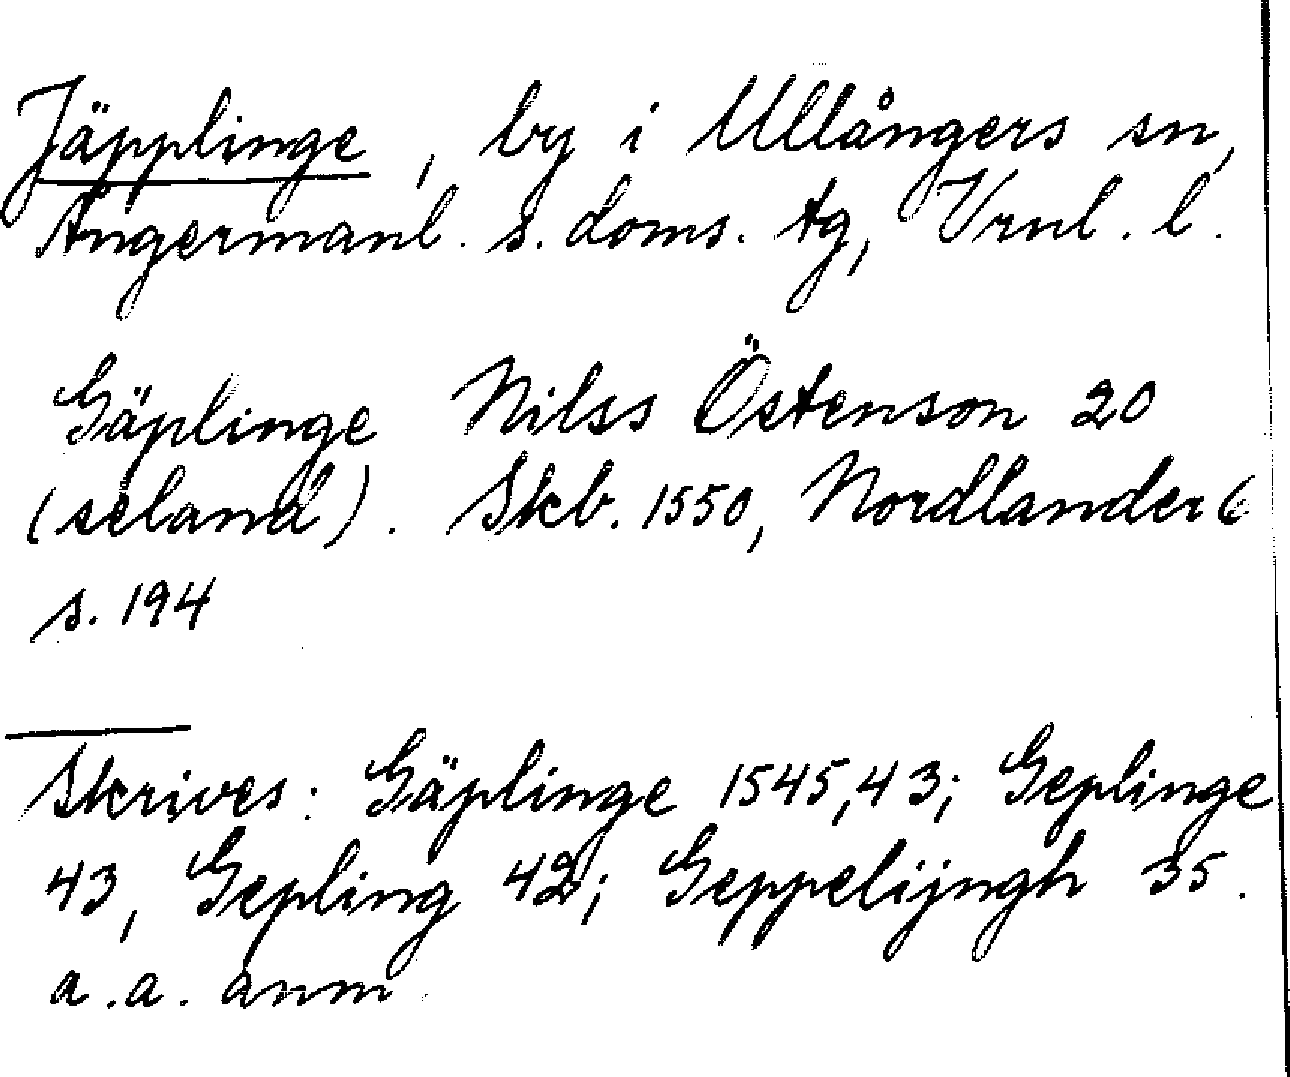 Jäpplinge, by i Ullångers sn,
Ångermanl. s. doms. tg, Vrnl. l.
Gäplinge Nilss Östenson 20
(seland). Skb. 1550, Nordlander 6
s. 194
Skrives: Gäplinge 1545, 43; Geplinge
43, Gepling 42; Geppelijngh 35.
a. a. anm